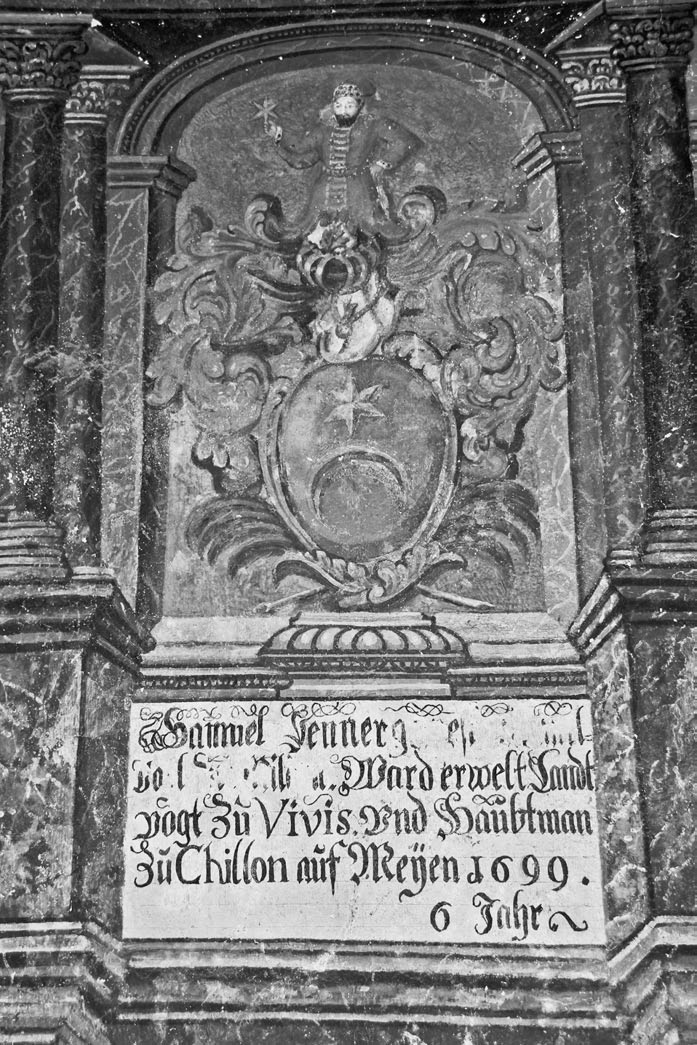 Samuel Jenner
Ward erwelt Landt
vogt zu Vivis. Vnd Haubtman
zu Chillon auf Meyen 1699.
6 Jahr